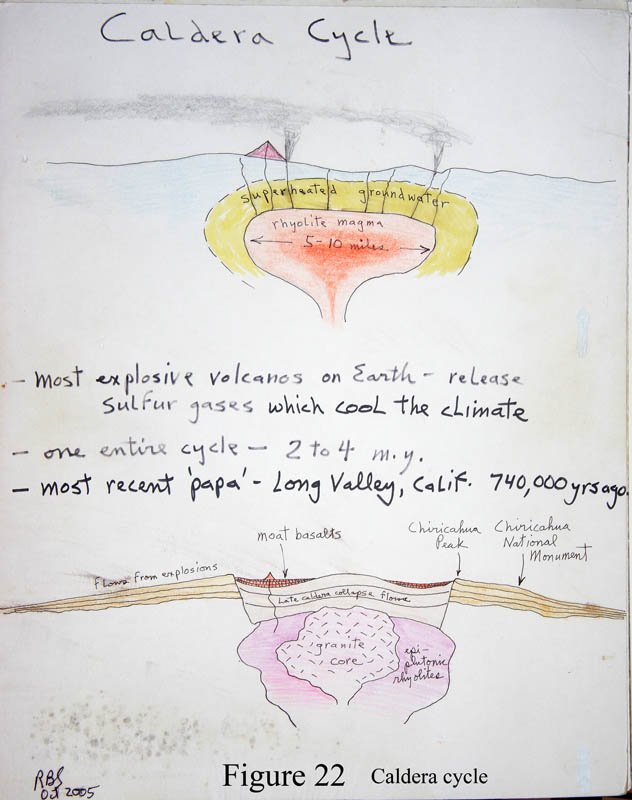 Caldera Cycle
superheated groundwater
rhyolite magma
5-10 miles
- most explosive volcanos on Earth - release
sulfur gases which cool the climate
- one entire cycle - 2 to 4 m.y.
- most recent 'papa' - Long Valley, Calif. 740,000 yrs ago.
moat basalts
Chiricahua
Peak
Chiricahua
National
Monument
flows from explosions
Late caldera collapse flows
granite
core
epi-
plutonic
rhyolites
RBS
Oct 2005
Figure 22 Caldera cycle